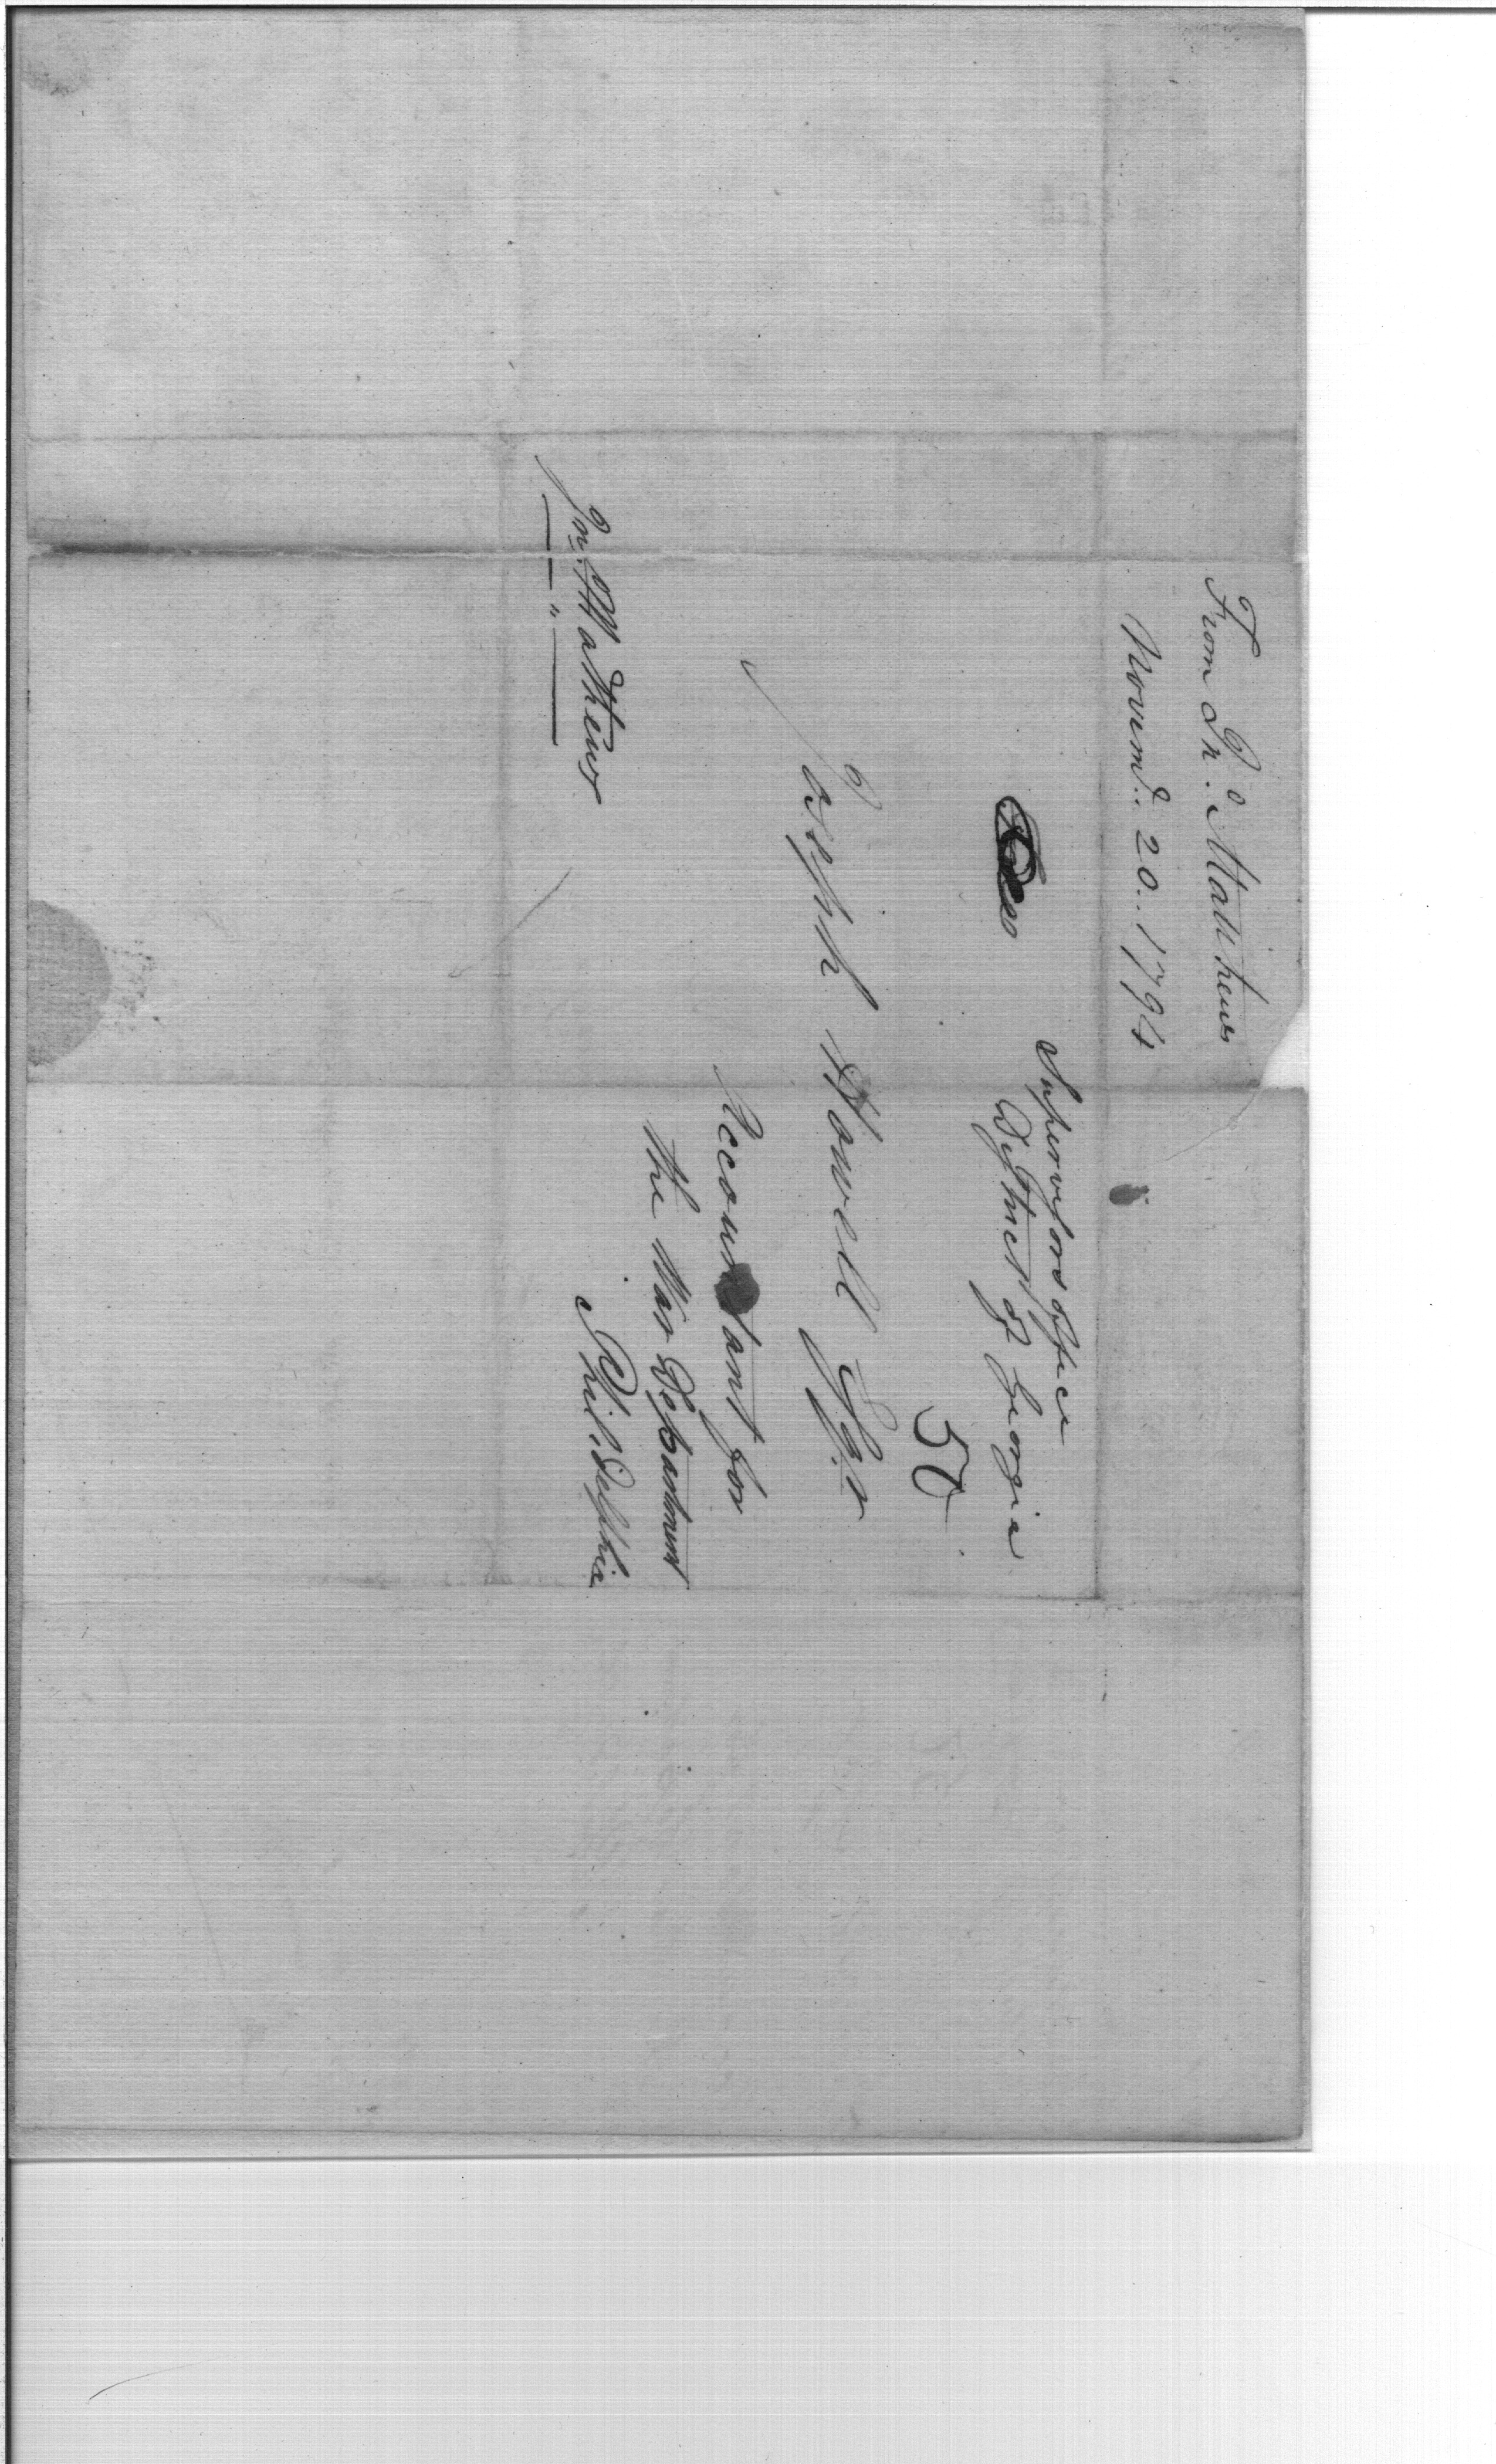 From Jno. Matthews
Novemr. 20. 1794
Supervisors office
District of Georgia
50
Joseph Howell Esqr
Accountant for
the War Department
Philidelphia
Jn. Mathews